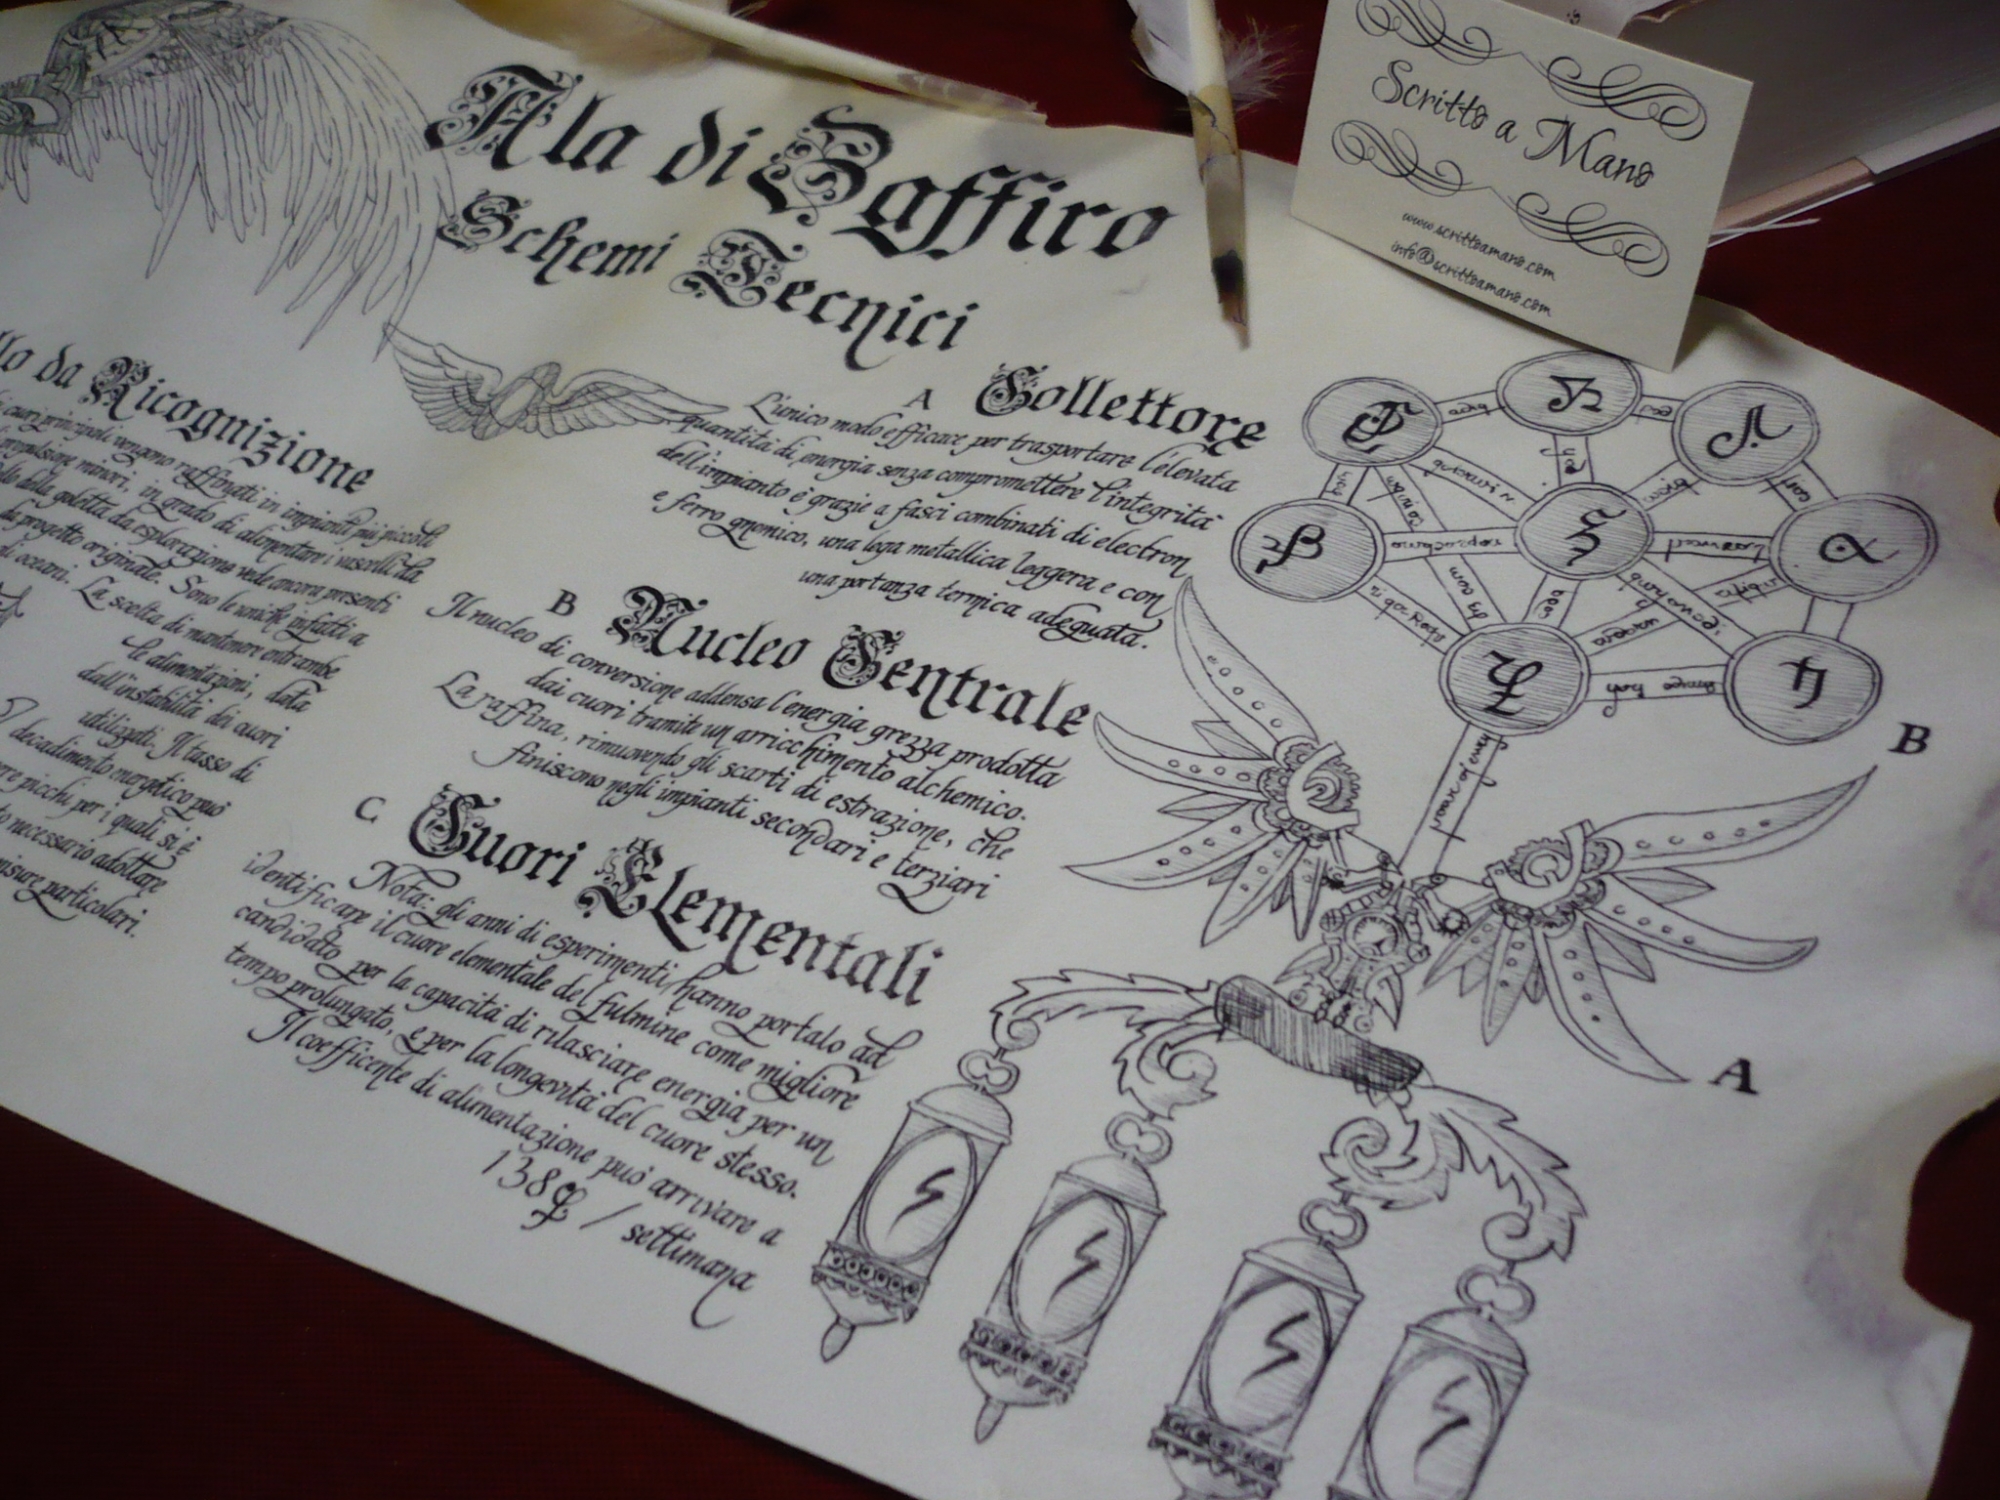 Ala di Zaffiro
Schemi Tecnici
Scritto a Mano
www.scrittoamano.com
info@scrittoamano.com
da Ricognizione
cuori principali vengono raffinati in impianti più piccoli
impulsione minori, in grado di alimentare i vascelli
della goletta da esplorazione vede ancora presenti
da progetto originale. Sono le uniche infatti a
di oceani. La scelta di mantenere entrambe
le alimentazioni, data
dall'instabilità dei cuori
utilizzati. Il tasso di
decadimento energetico può
picchi per i quali si è
necessario adottare
misure particolari.
A Collettore
L'unico modo efficace per trasportare l'elevata
quantità di energia senza compromettere l'integrità
dell'impianto è grazie a fasci combinati di electron
e ferro gnomico, una lega metallica leggera e con
una portanza termica adeguata.
B Nucleo Centrale
Il nucleo di conversione addensa l'energia grezza prodotta
dai cuori tramite un arricchimento alchemico.
La raffina, rimuovendo gli scarti di estrazione, che
finiscono negli impianti secondari e terziari
C Cuori Elementali
Nota: gli anni di esperimenti hanno portato ad
identificare il cuore elementale del fulmine come migliore
candidato per la capacità di rilasciare energia per un
tempo prolungato, e per la longevità del cuore stesso.
Il coefficente di alimentazione può arrivare a
138 / settimana
B
A